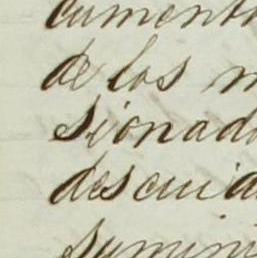 cument
de los m
sionad
descuid
sumini